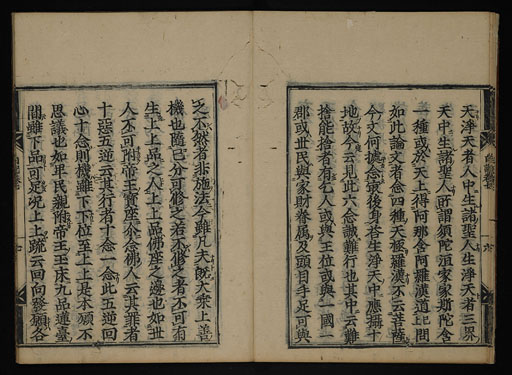 天淨天者人中生諸聖人生淨天者三界
天中生諸聖人所謂須陀洹家家斯陀含
一種或於天上得阿那含阿羅漢道上問
如此論文者念四種天極羅漢不云菩薩
今文何據念最後身答生淨天中應攝十
地故今云見此六念誠難行也其中云難
捨能捨者有乞人或與王位或與一國一
郡或世民與家財眷屬及頭目手足可與
之不然者非施法今雖凡夫既大乘上善
機也隨己分可修之若不修之者不可有
生上上品之人上上品佛座之邊也如世
人不可附帝王寶座尒念佛人云其罪者
十惡五逆云其行者十念一念此五逆回
心十念則機雖下下位至上上是本願不
思議也如卑民親附帝王玉床九品蓮臺
間雖下品可足况上上疏云回向發願各